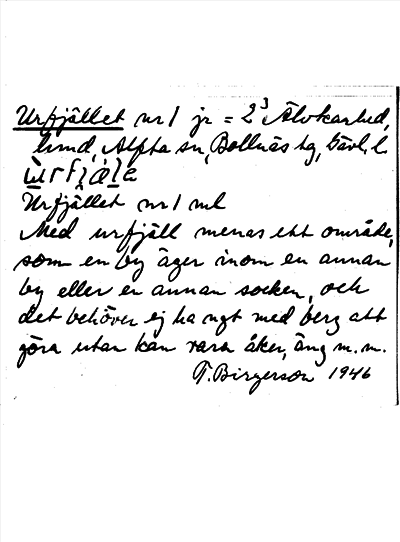 Urfjället nr 1 jr = 2³ Älvkarhed,
hmd, Alfta sn, Bollnäs tg, Gävl. l.
Urfjället nr 1 ml
Med urfjäll menas ett område,
som en by äger inom en annan
by eller en annan socken, och
det behöver ej ha ngt med berg att
göra utan kan vara åker, äng m. m.
T. Birgerson 1946